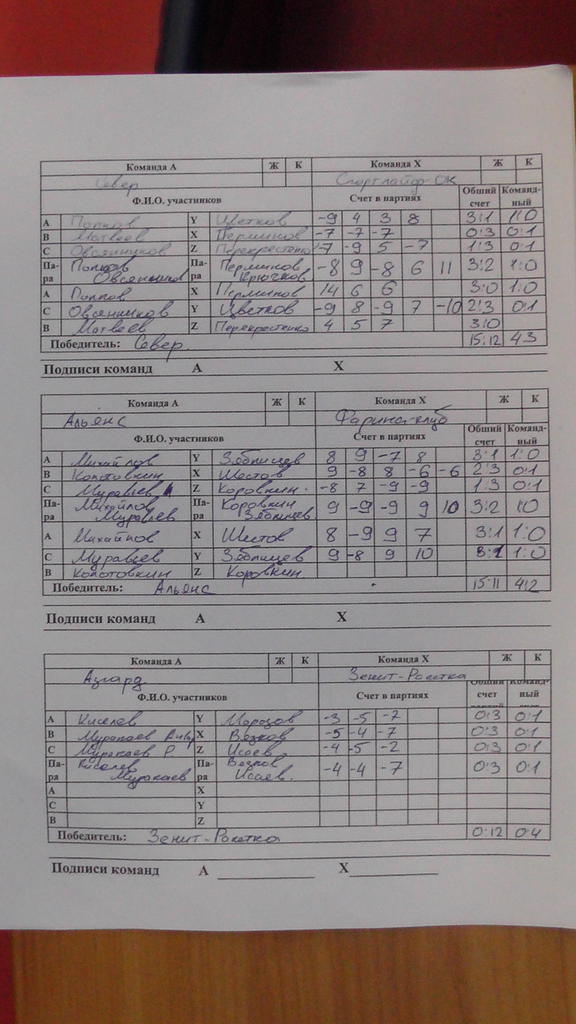 Команда А Ж К Команда X Ж К
Север Спортлайф-ОК
Ф.И.О. участников Счет в партиях Общий счет Команд-ный
А Попков Y Цветков -9 4 3 8 3:1 1:0
В Матвеев X Перминов -7 -7 -7 0:3 0:1
С Овсянников Z Перекрестенко -7 -9 5 -7 1:3 0:1
Па-ра Попков Овсянников Па-ра Перминов Крючков -8 9 -8 6 11 3:2 1:0
А Попков X Перминов 14 6 6 3:0 1:0
С Овсянников Y Цветков -9 8 -9 7 -10 2:3 0:1
В Матвеев Z Перекрестенко 4 5 7 3:0
Победитель: Север 15:12 4:3
Подписи команд А X
Команда А Ж К Команда X Ж К
Альянс Фаринос-клуб
Ф.И.О. участников Счет в партиях Общий счет Команд-ный
А Михайлов Y Зяблицев 8 9 -7 8 3:1 1:0
В Колотовкин X Шестов 9 -8 8 -6 -6 2:3 0:1
С Муравьев Z Коровкин -8 7 -9 -9 1:3 0:1
Па-ра Михайлов Муравьев Па-ра Коровкин Зяблицев 9 -9 -9 9 10 3:2 1:0
А Михайлов X Шестов 8 -9 9 7 3:1 1:0
С Муравьев Y Зяблицев 9 -8 9 10 3:1 1:0
В Колотовкин Z Коровкин
Победитель: Альянс 15:11 4:2
Подписи команд А X
Команда А Ж К Команда X Ж К
Азгард Зенит-Ракетка
Ф.И.О. участников Счет в партиях Общий счет Команд-ный
А Киселев Y Морозов -3 -5 -7 0:3 0:1
В Муракаев X Возков -5 -4 -7 0:3 0:1
С Муракаев Р. Z Исаев -4 -5 -2 0:3 0:1
Па-ра Киселев Муракаев Па-ра Возков Исаев -4 -4 -7 0:3 0:1
А X
С Y
В Z
Победитель: Зенит-Ракетка 0:12 0:4
Подписи команд А X